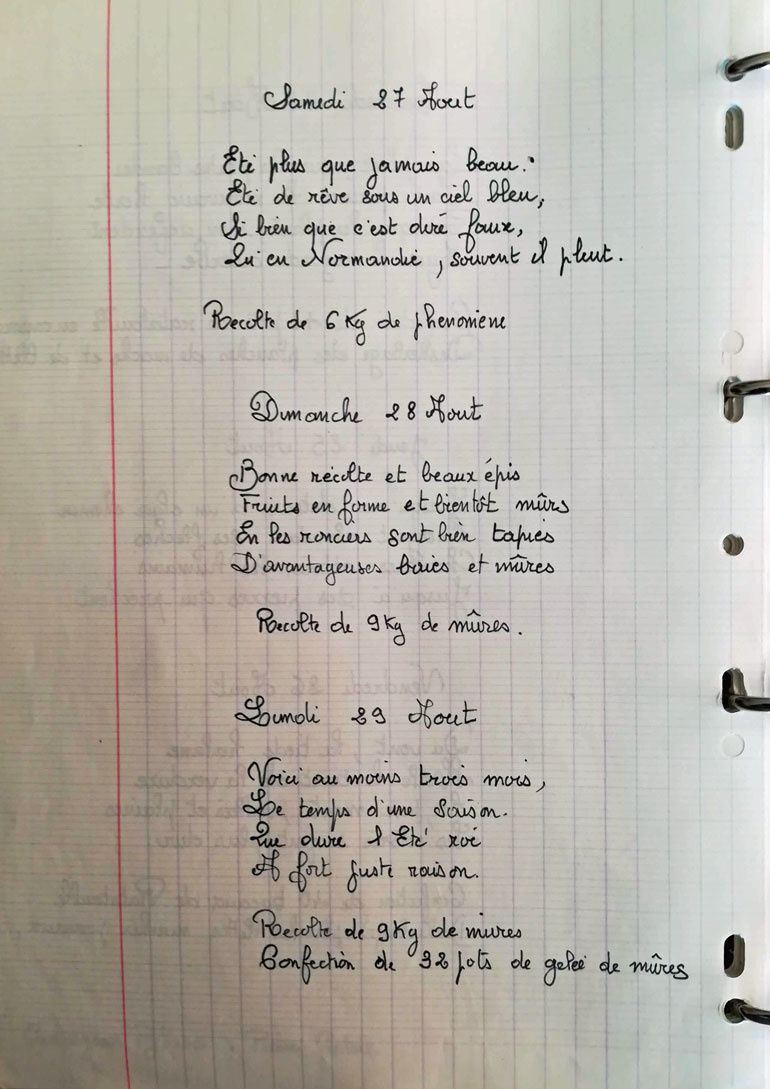 Samedi 27 Aout
Eté plus que jamais beau.
Eté de rêve sous un ciel bleu,
Si bien que c'est dire faux,
Qu'en Normandie, souvent il pleut.
Recolte de 6 Kg de phenomene
Dimanche 28 Aout
Bonne récolte et beaux épis
Fruits en forme et bientôt mûrs
En les ronciers sont bien tapies
D'avantageuses baies et mûres
Recolte de 9 Kg de mûres.
Lundi 29 Aout
Voici au moins trois mois,
Le temps d'une saison.
Que dure l'Eté roi
A fort juste raison.
Recolte de 9 Kg de mures
Confection de 32 pots de gelée de mûres